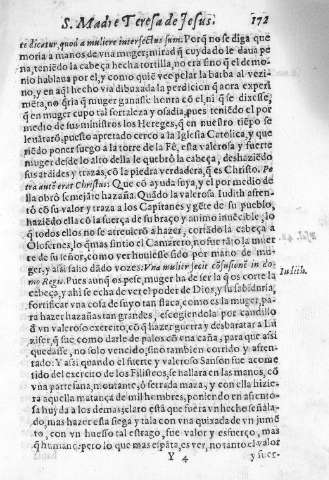 S. Madre Teresa de Jesus. 172
te dicatur, quod a muliere interfectus sum. Porq̃ no se diga que
moria a manos de vna muger; mirad q̃ cuydado le daua pe
na, teniẽdo la cabeça hecha tortilla, no era sino q̃ el demo-
nio hablaua por el, y como quiẽ vee pelar la barba al vezi-
no, y en aq̃l hecho via dibuxada la perdicion q̃ aora experi
mẽta, no q̃ria q̃ muger ganasse honra cõ el, ni q̃ se dixesse,
q̃ en muger cupo tal fortaleza y osadia, pues teniẽdo el por
medio de sus ministros los Hereges, q̃ en nuestro tiẽpo se
leuãtarõ, puesto apretado cerco a la Iglesia Catolica, y que
riẽdo poner fuego a la torre de la Fè, esta valerosa y fuerte
muger desde lo alto della le quebrò la cabeça, deshaziẽdo
sus ardides y trazas, cõ la piedra verdadera, q̃ es Christo. Pe
tra autẽ erat Christus: Que cõ ayuda suya, y el por medio de
ella obrò semejãte hazaña. Quãdo la valerosa Iudith afren-
tò cõ su valor y traza a los Capitanes y gẽte de su pueblo,
haziẽdo ella cõ la fuerça de su braço y animo inuẽcible, lo
q̃ todos ellos no se atreuierõ a hazer, cortãdo la cabeça a
Olofernes, lo q̃ mas sintio el Camarero, no fue tãto la muer
te de su señor, como ver houiesse sido por mano de mu-
ger, y assi salio dãdo vozes: Vna mulier fecit cõfusionẽ in do
mo Regis. Pues aunq̃ os pese, muger ha de ser la q̃ os corte la
Iudith.
cabeça, y ahi se echa de ver el poder de Dios, y su sabiduria,
fortificar vna cosa de suyo tan flaca, como es la muger, pa-
ra hazer hazañas tan grandes, escogiendola por caudillo
d̃ vn valeroso exercito, cõ q̃ hazer guerra y desbaratar a Lu
zifer, q̃ fue como darle de palos cõ vna caña, para que assi
quedasse, no solo vencido, sino tambien corrido y afren-
tado: Y assi quando el fuerte y valeroso Sanson fue acome
tido del exercito de los Filisteos, se hallara en las manos, cõ
vna partesana, montante, ò ferrada maza, y con ella hizie-
ra aquella matança de mil hombres, poniendo en afrento-
sa huyda a los demas; claro està que fuera vn hecho señala-
do, mas hazer esta siega y tala con vna quixada de vn jumẽ
to, con vn huesso tal estrago, fue valor y esfuerço, mas
q̃ humano; pero lo que mas espãta, es ver, no tanto el valor
Y 4 y fuer-